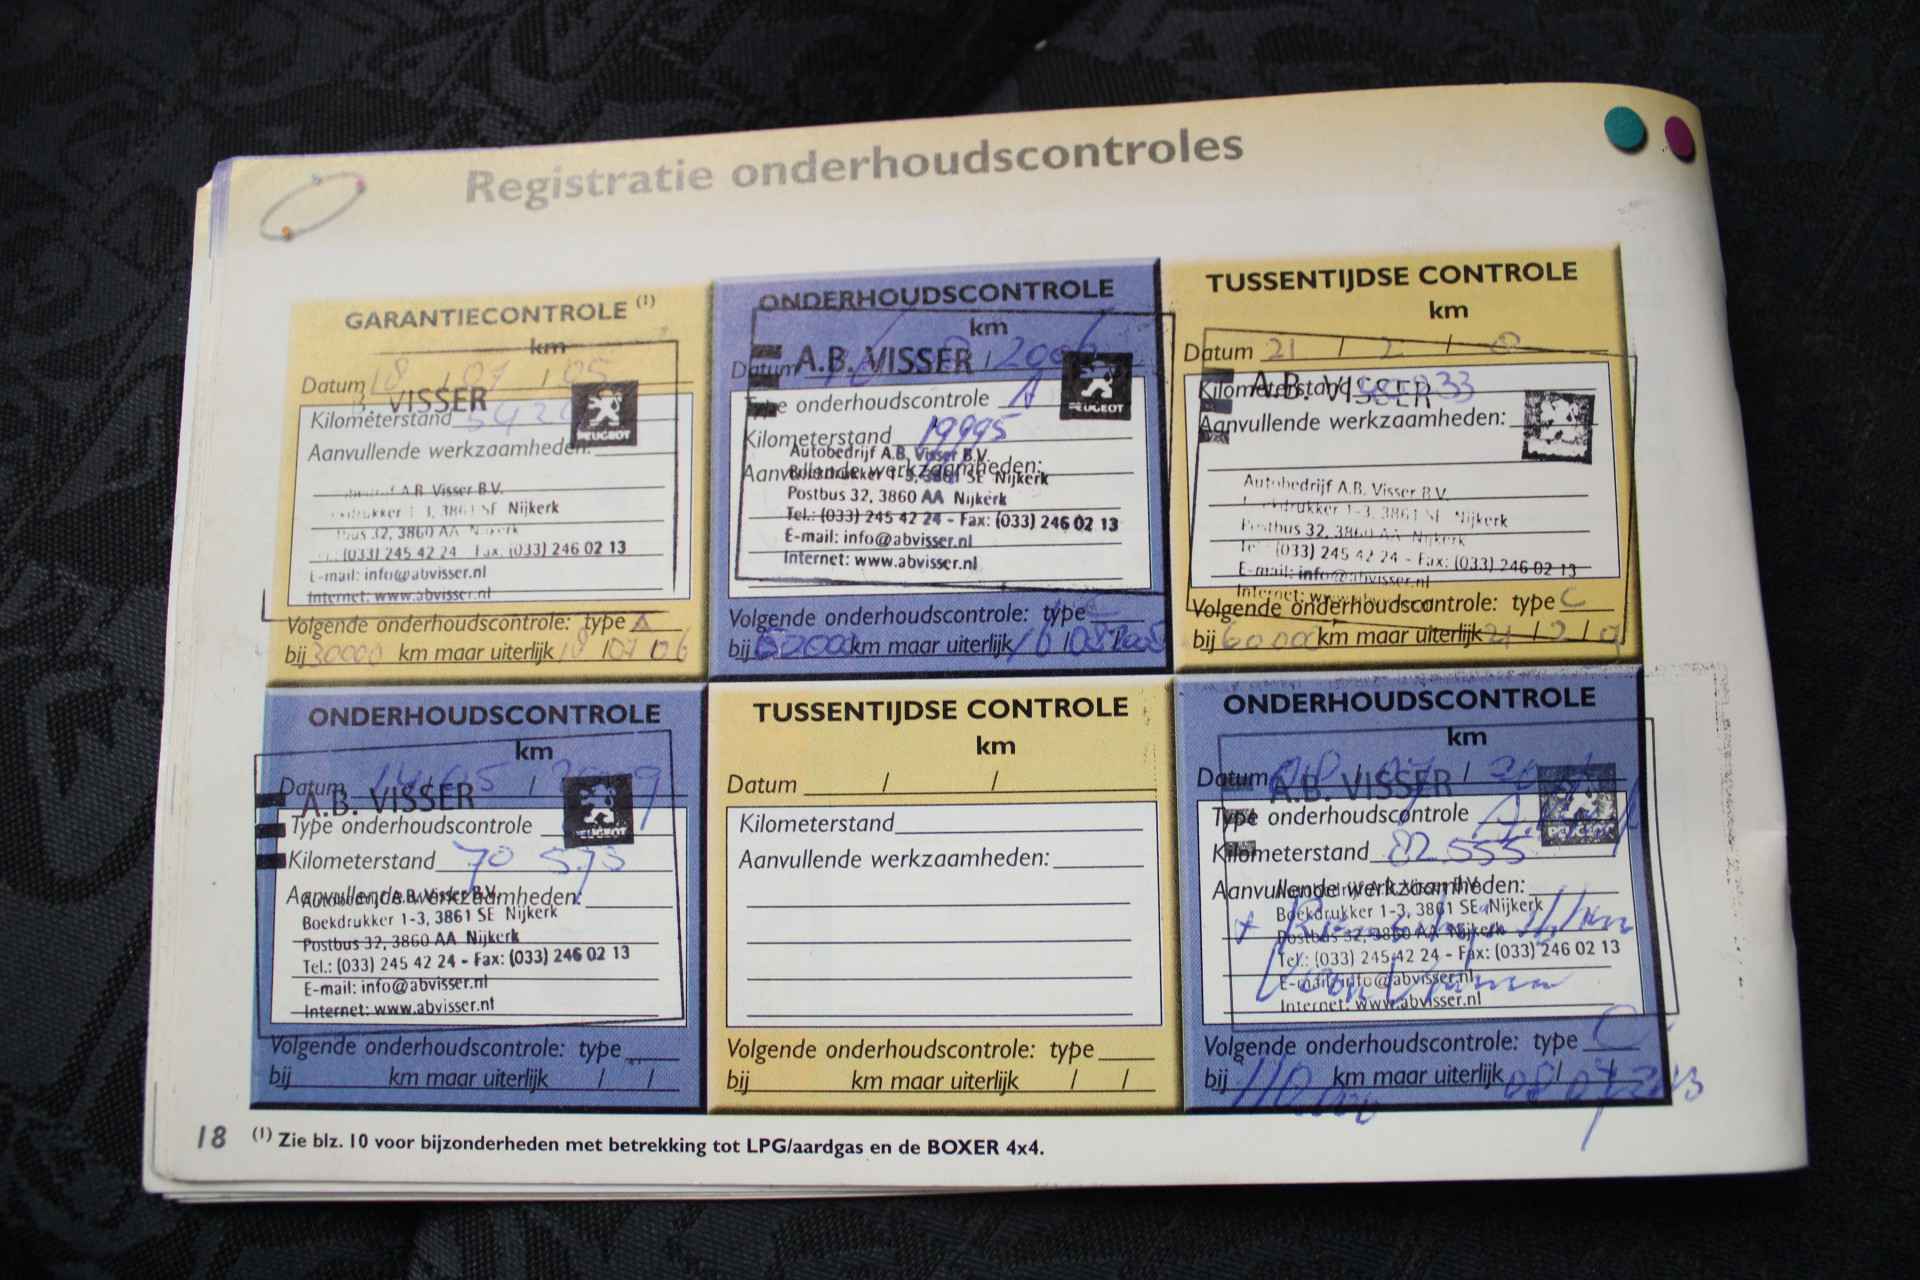 Registratie onderhoudscontroles
GARANTIECONTROLE (1)
km
Datum 18 / 07 / 05
VISSER
Kilometerstand
PEUGEOT
Aanvullende werkzaamheden:
A.B. Visser B.V.
3861 SE Nijkerk
32, 3860 AA Nijkerk
(033) 245 42 24 Fax: (033) 246 02 13
E-mail: info@abvisser.nl
Internet: www.abvisser.nl
Volgende onderhoudscontrole: type A
bij 30000 km maar uiterlijk 18 / 07 / 06
ONDERHOUDSCONTROLE
km
Datum / 2006
A.B. VISSER
PEUGEOT
Type onderhoudscontrole A
Kilometerstand 19995
Aanvullende werkzaamheden:
Autobedrijf A.B. Visser B.V.
Boekdrukker 1-3, 3861 SE Nijkerk
Postbus 32, 3860 AA Nijkerk
Tel.: (033) 245 42 24 - Fax: (033) 246 02 13
E-mail: info@abvisser.nl
Internet: www.abvisser.nl
Volgende onderhoudscontrole: type C
bij km maar uiterlijk
TUSSENTIJDSE CONTROLE
km
Datum 21 / 2 /
A.B. VISSER
Kilometerstand
Aanvullende werkzaamheden:
Autobedrijf A.B. Visser B.V.
Boekdrukker 1-3, 3861 SE Nijkerk
Postbus 32, 3860 AA Nijkerk
Tel. (033) 245 42 24 - Fax: (033) 246 02 13
E-mail: info@abvisser.nl
Internet: www.abvisser.nl
Volgende onderhoudscontrole: type C
bij 60.000 km maar uiterlijk 21 / 2 / 09
ONDERHOUDSCONTROLE
km
Datum 14 / 05 / 2009
A.B. VISSER
PEUGEOT
Type onderhoudscontrole
Kilometerstand 70 573
Aanvullende werkzaamheden:
Autobedrijf A.B. Visser B.V.
Boekdrukker 1-3, 3861 SE Nijkerk
Postbus 32, 3860 AA Nijkerk
Tel.: (033) 245 42 24 - Fax: (033) 246 02 13
E-mail: info@abvisser.nl
Internet: www.abvisser.nl
Volgende onderhoudscontrole: type
bij km maar uiterlijk / /
TUSSENTIJDSE CONTROLE
km
Datum / /
Kilometerstand
Aanvullende werkzaamheden:
Volgende onderhoudscontrole: type
bij km maar uiterlijk / /
ONDERHOUDSCONTROLE
km
Datum 07 /
A.B. VISSER
PEUGEOT
Type onderhoudscontrole
Kilometerstand 82.555
Aanvullende werkzaamheden:
Autobedrijf A.B. Visser B.V.
Boekdrukker 1-3, 3861 SE Nijkerk
Postbus 32, 3860 AA Nijkerk
Tel.: (033) 245 42 24 - Fax: (033) 246 02 13
E-mail: info@abvisser.nl
Internet: www.abvisser.nl
Volgende onderhoudscontrole: type C
bij 110.000 km maar uiterlijk 08 / 07 / 2013
18 (1) Zie blz. 10 voor bijzonderheden met betrekking tot LPG/aardgas en de BOXER 4x4.